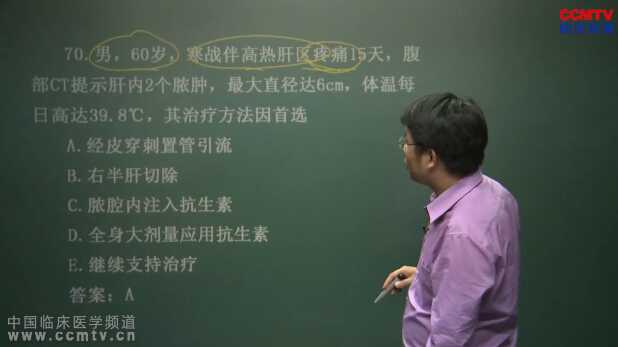 CCMTV
70.男，60岁，寒战伴高热肝区疼痛15天，腹
部CT提示肝内2个脓肿，最大直径达6cm，体温每
日高达39.8℃，其治疗方法因首选
A.经皮穿刺置管引流
B.右半肝切除
C.脓腔内注入抗生素
D.全身大剂量应用抗生素
E.继续支持治疗
答案：A
中国临床医学频道
www.ccmtv.cn